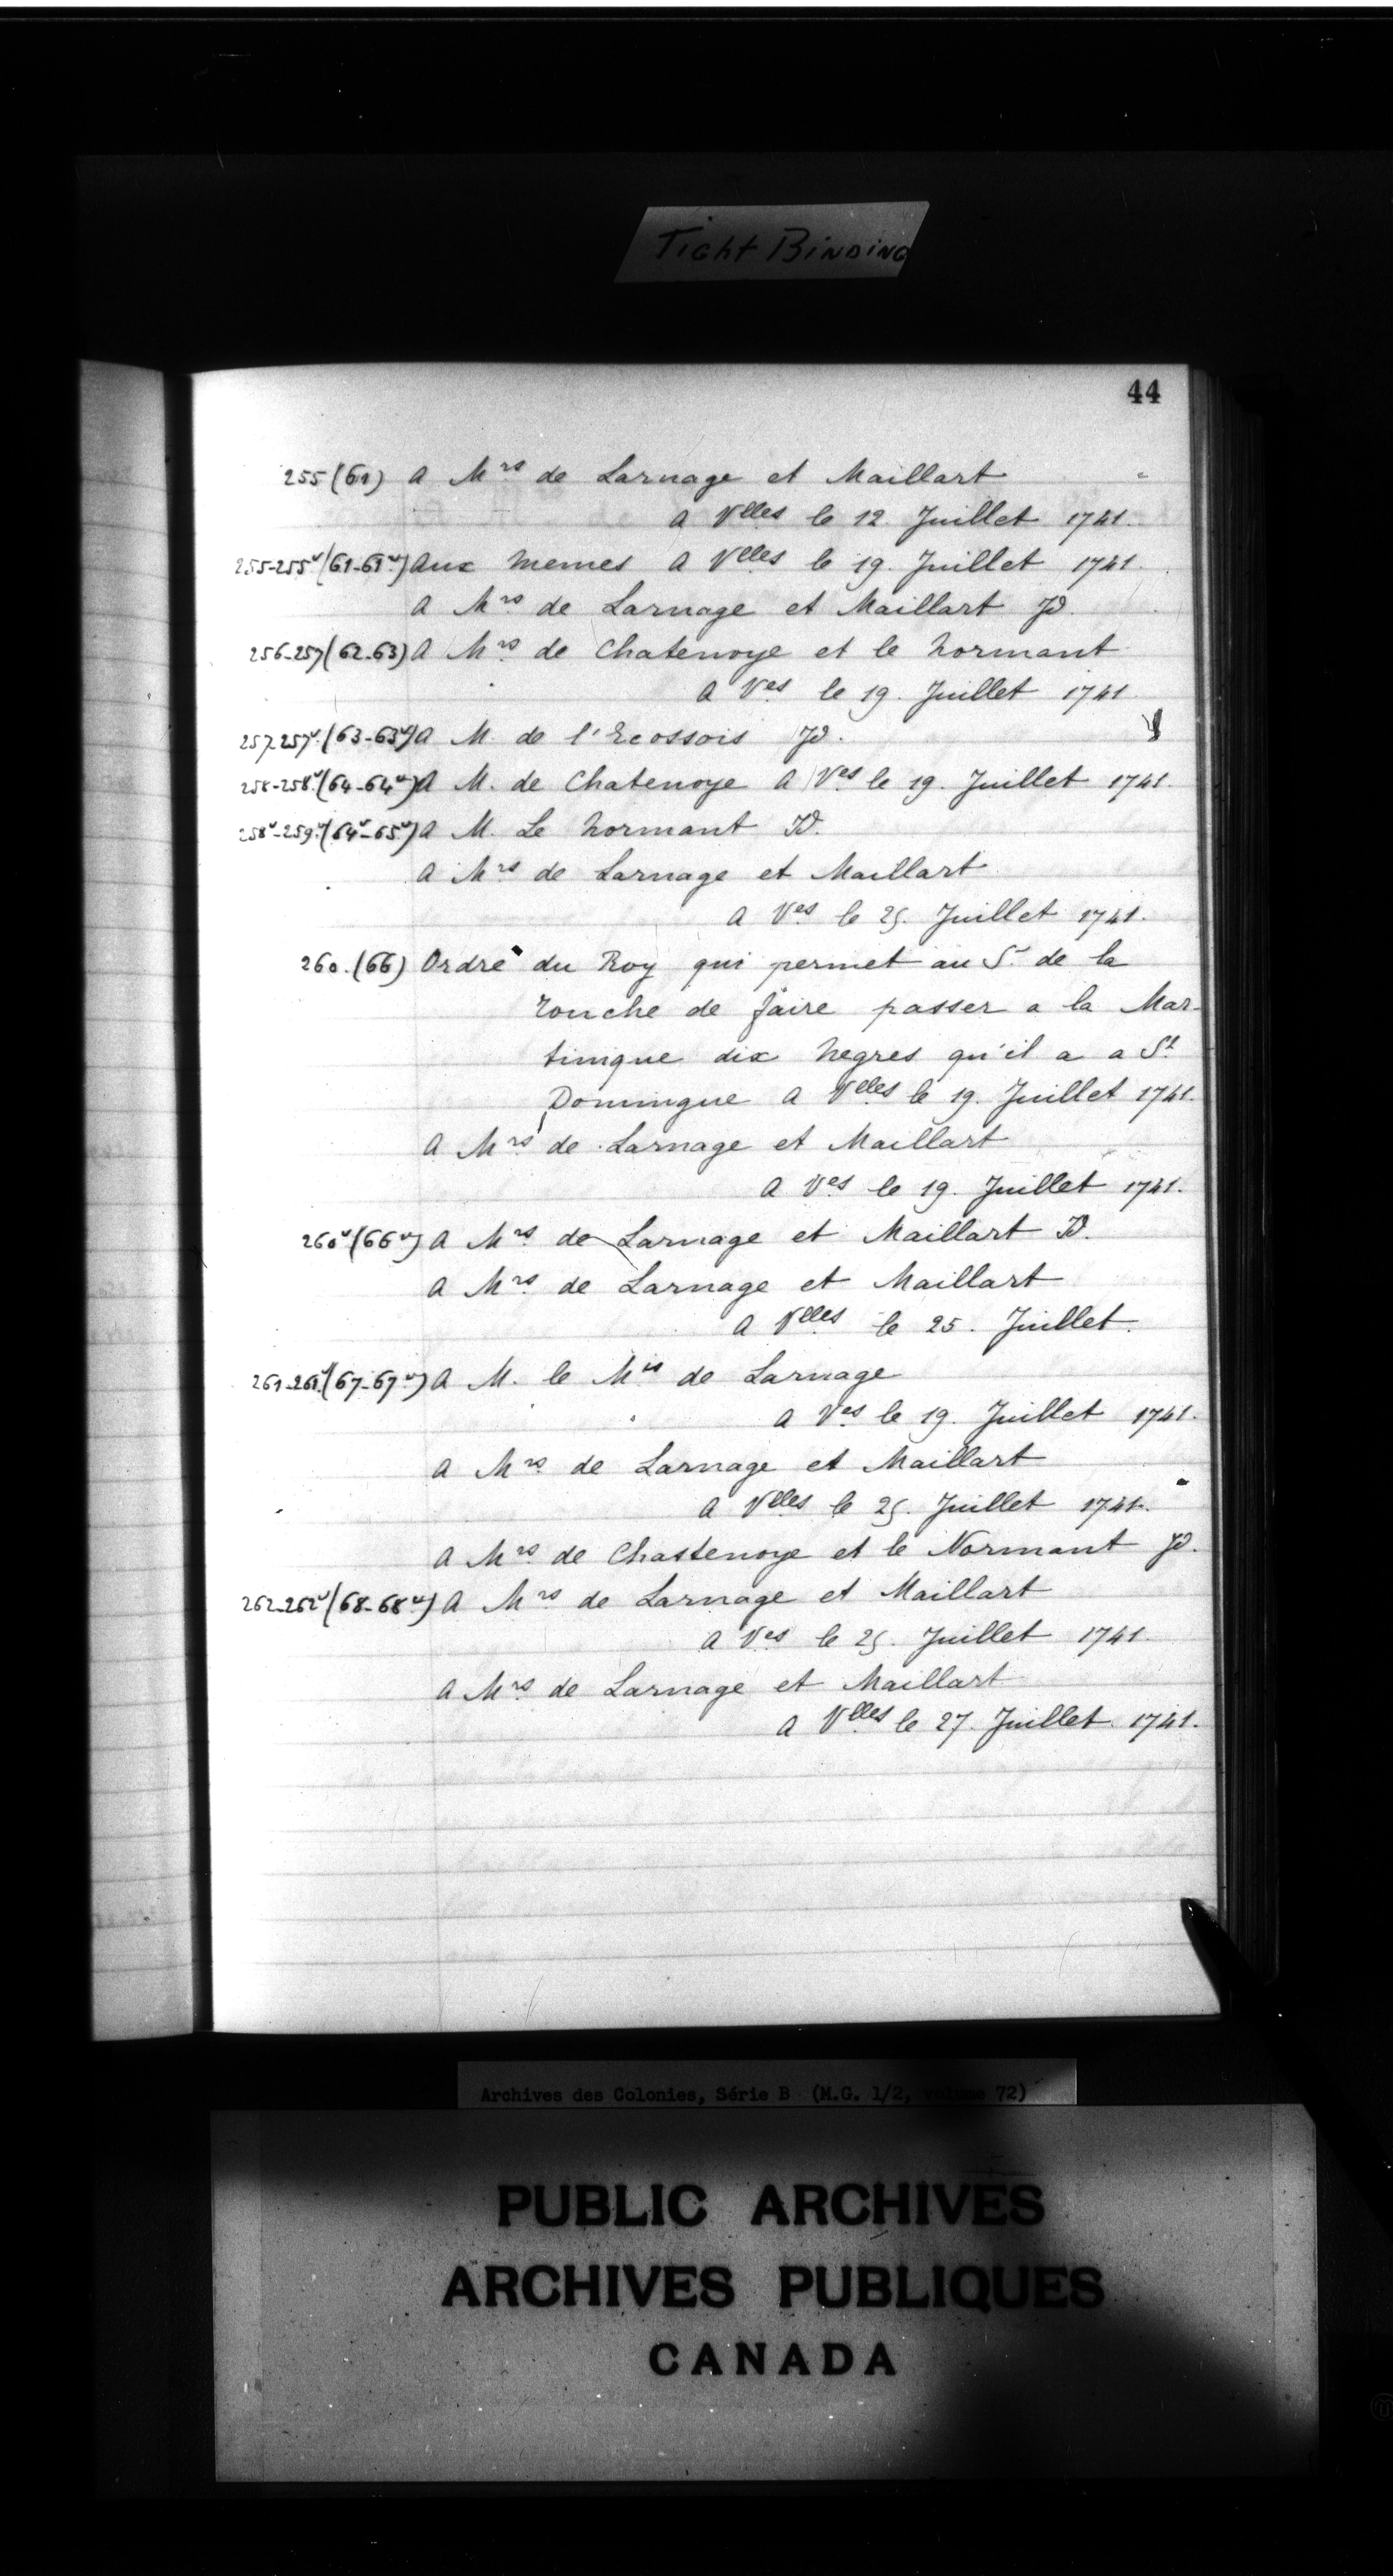 Tight Binding
44
255 (61) A Mrs de Larnage et Maillart
A Vlles le 12. Juillet 1741.
255-255v (61-61v) Aux memes A Vlles le 19. Juillet 1741.
A Mrs de Larnage et Maillart Jd.
256-257 (62-63) A Mrs de Chatenoye et le Normant
A Ves le 19. Juillet 1741.
257-257v. (63-63v) A M. de l'Ecossois Jd.
258-258v. (64-64v) A M. de Chatenoye A Ves le 19. Juillet 1741.
258v-259. (64v-65v) A M. Le Normant Jd.
A Mrs de Larnage et Maillart
A Ves le 25. Juillet 1741.
260. (66) Ordre du Roy qui permet au Sr. de la
Touche de faire passer a la Mar-
tinique dix Negres qu'il a a St
Domingue A Vlles le 19. Juillet 1741.
A Mrs de Larnage et Maillart
A Ves le 19. Juillet 1741.
260v (66v) A Mrs de Larnage et Maillart Jd.
A Mrs de Larnage et Maillart
A Vlles le 25. Juillet.
261-261v. (67-67v) A M. le Mis de Larnage
A Ves le 19. Juillet 1741.
A Mrs de Larnage et Maillart
A Vlles le 25. Juillet 1741.
A Mrs de Chastenoye et le Normant Jd.
262-262v (68-68v) A Mrs de Larnage et Maillart
A Ves le 25. Juillet 1741.
A Mrs de Larnage et Maillart
A Vlles le 27. Juillet 1741.
Archives des Colonies, Série B (M.G. 1/2, volume 72)
PUBLIC ARCHIVES
ARCHIVES PUBLIQUES
CANADA